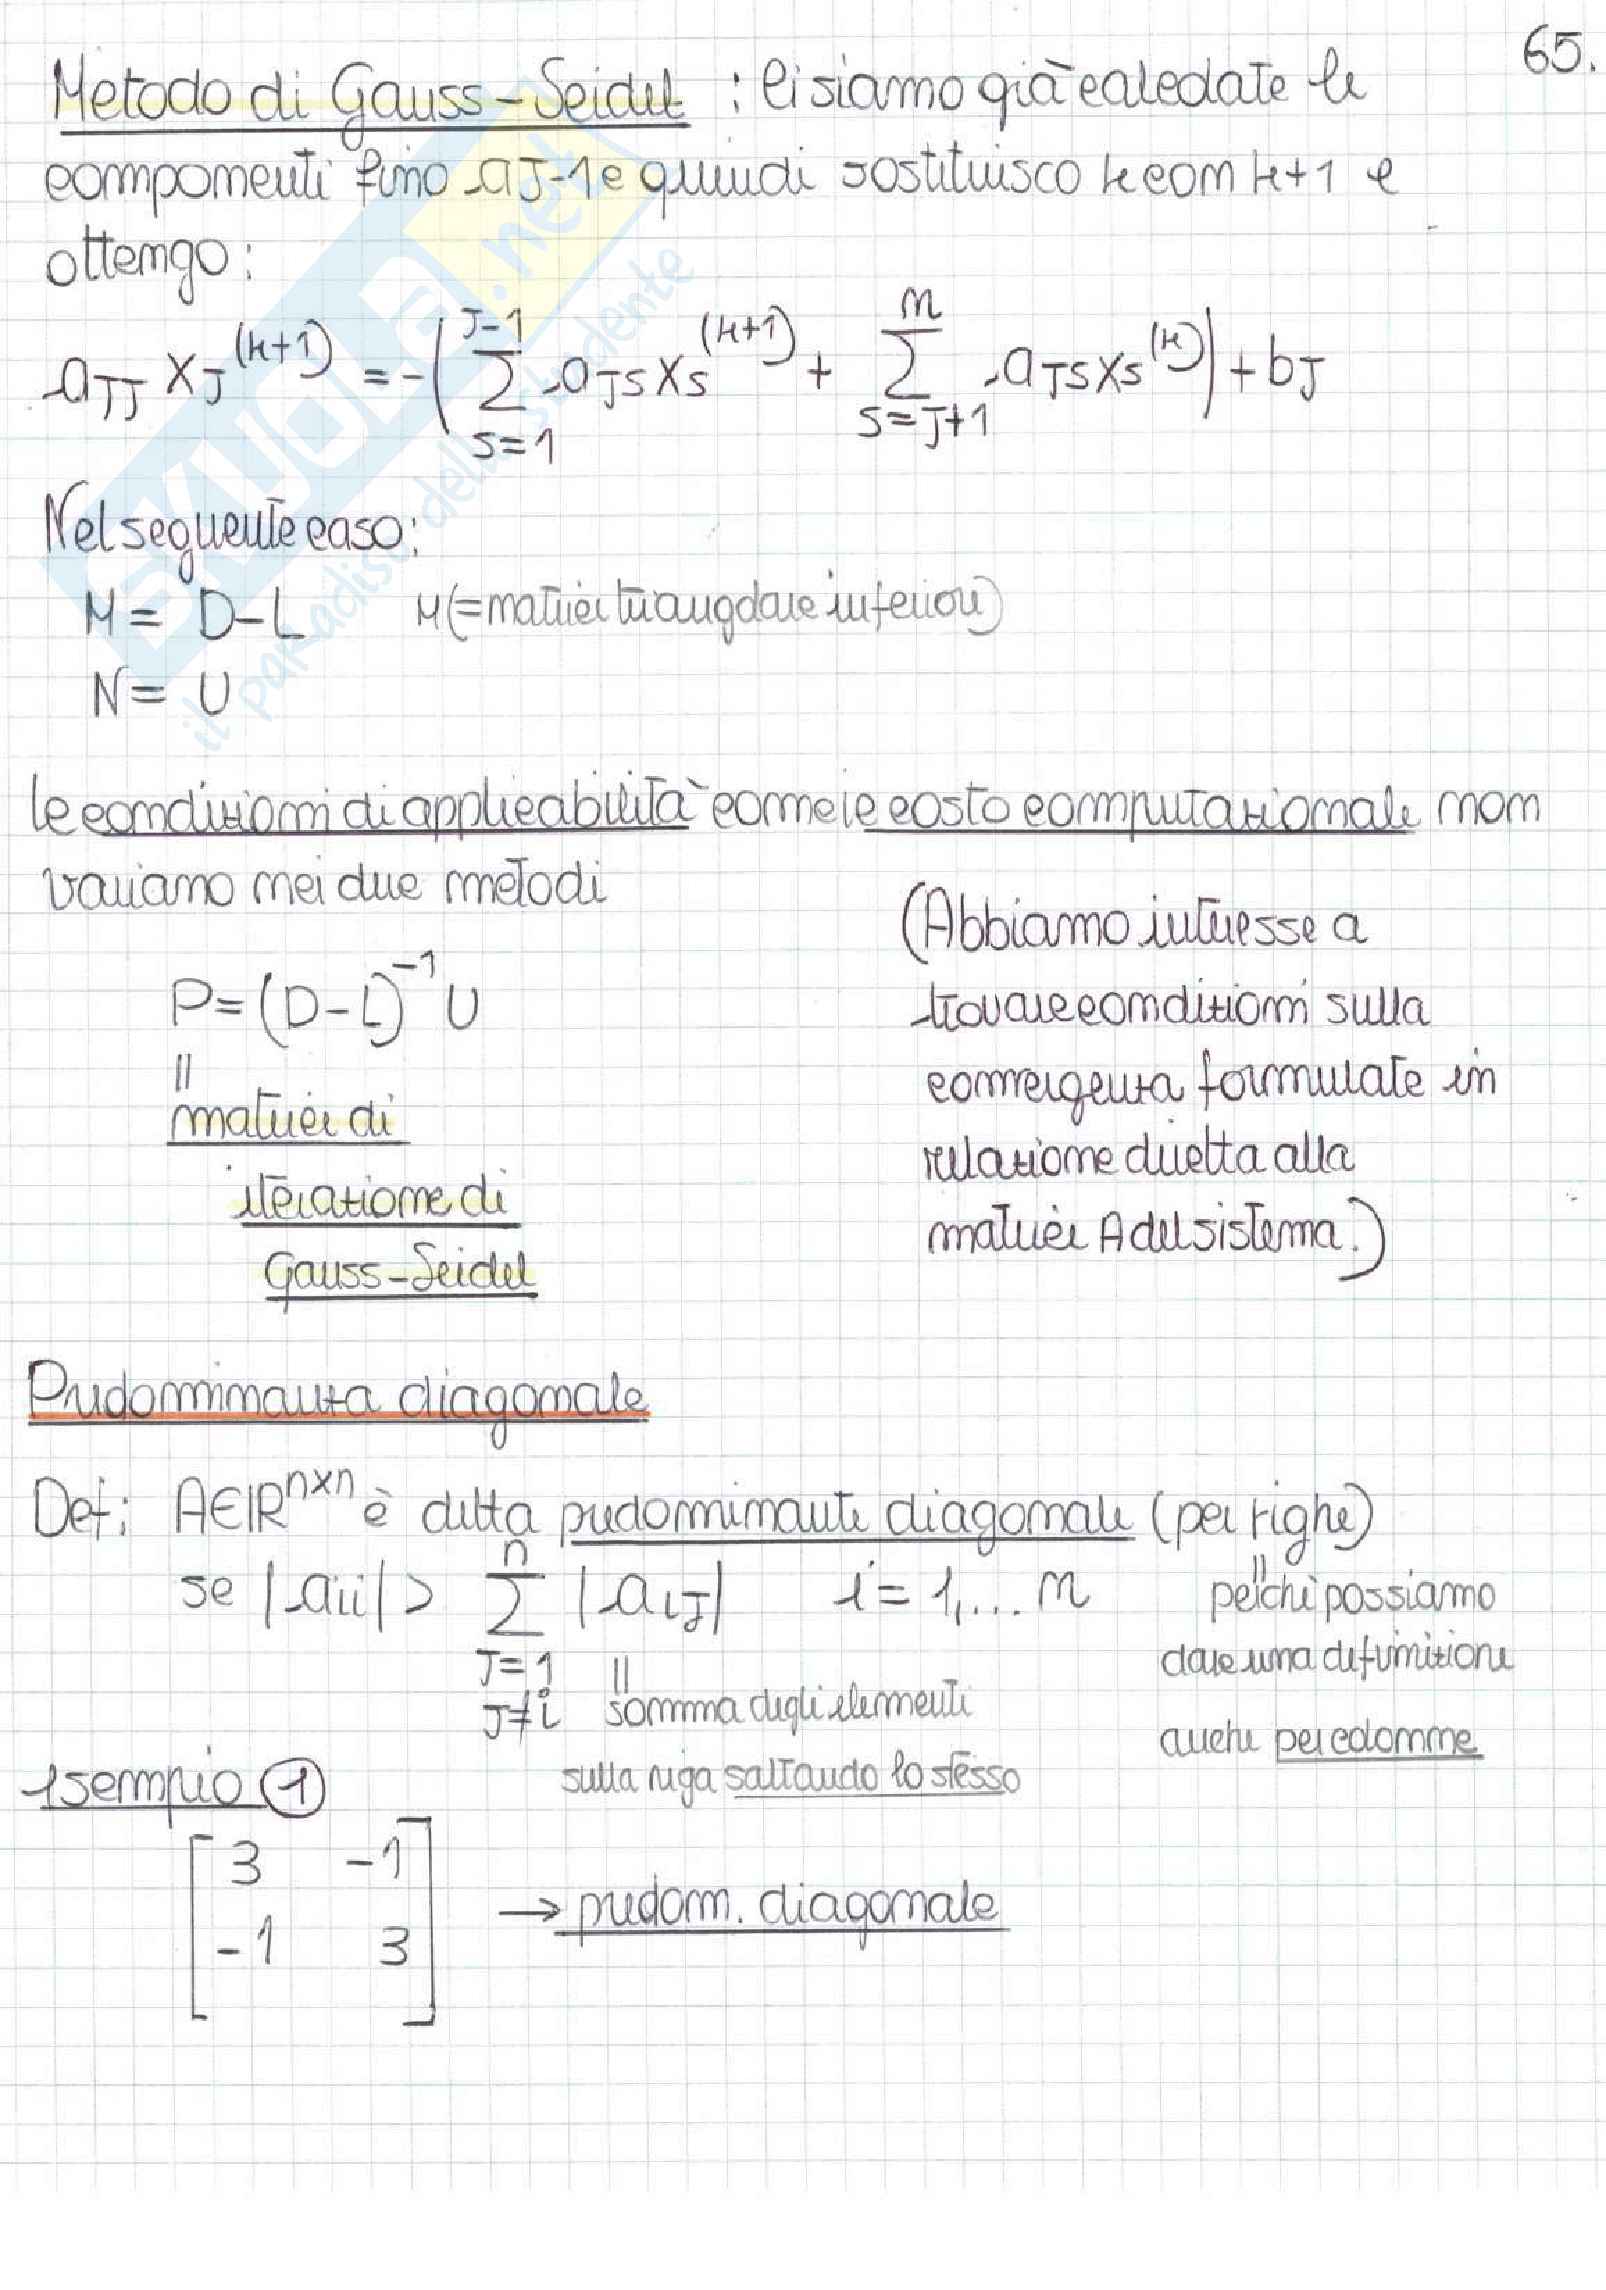 65.
Metodo di Gauss-Seidel : Ci siamo già calcolate le
componenti fino a J-1 e quindi sostituisco k con k+1 e
ottengo:
a_JJ x_J^(k+1) = -( Σ_{s=1}^{J-1} a_Js x_s^(k+1) + Σ_{s=J+1}^{n} a_Js x_s^(k) ) + b_J
Nel seguente caso:
M = D-L M(=matrice triangolare inferiore)
N = U
le condizioni di applicabilità come il costo computazionale non
variano nei due metodi
P = (D-L)^-1 U
=
matrice di
iterazione di
Gauss-Seidel
(Abbiamo interesse a
trovare condizioni sulla
convergenza formulate in
relazione diretta alla
matrice A del sistema.)
Predominanza diagonale
Def: A∈ℝ^{n×n} è detta predominante diagonale (per righe)
se |a_ii| > Σ_{J=1, J≠i}^{n} |a_iJ| i = 1,... n
=
somma degli elementi
sulla riga saltando lo stesso
=
perché possiamo
dare una definizione
anche per colonne
Esempio ①
[ 3 -1
-1 3 ] → predom. diagonale
SKUOLA.net
il paradiso dello studente